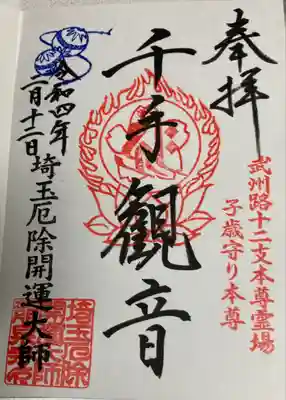 奉拝
武州路十二支本尊霊場
子歳守り本尊
千手観音
令和四年
一月十二日
埼玉厄除開運大師